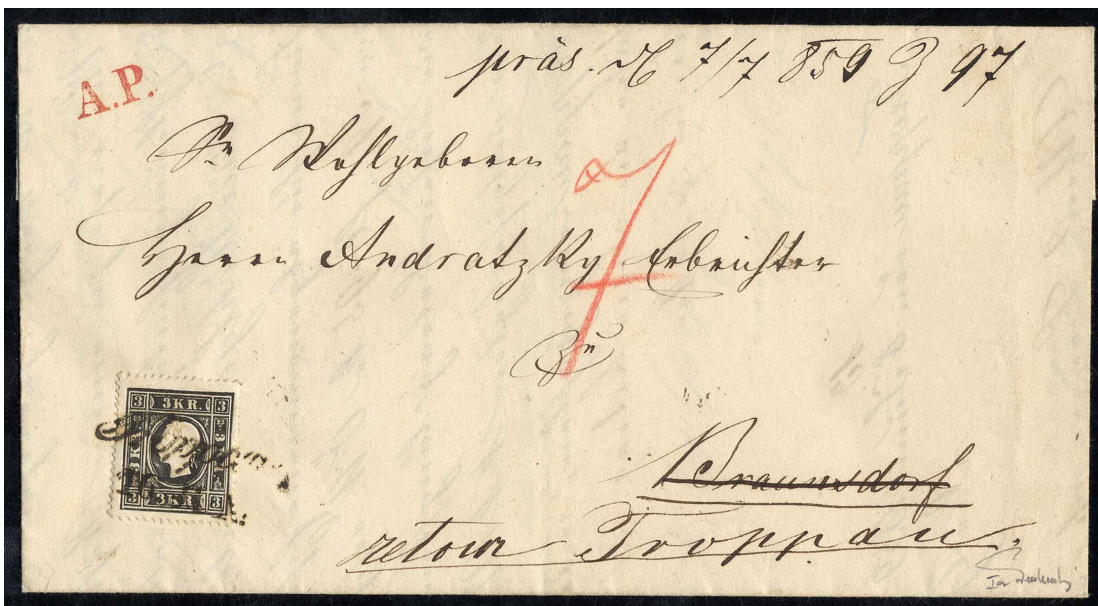 präs. 7/7 859 Z 97
A.P.
Sr Wohlgeboren
7
Herrn Andratzky Erbrichter
zu
3 3KR. 3
3KR. 3KR.
3 3KR. 3
Braunsdorf
retour Troppau